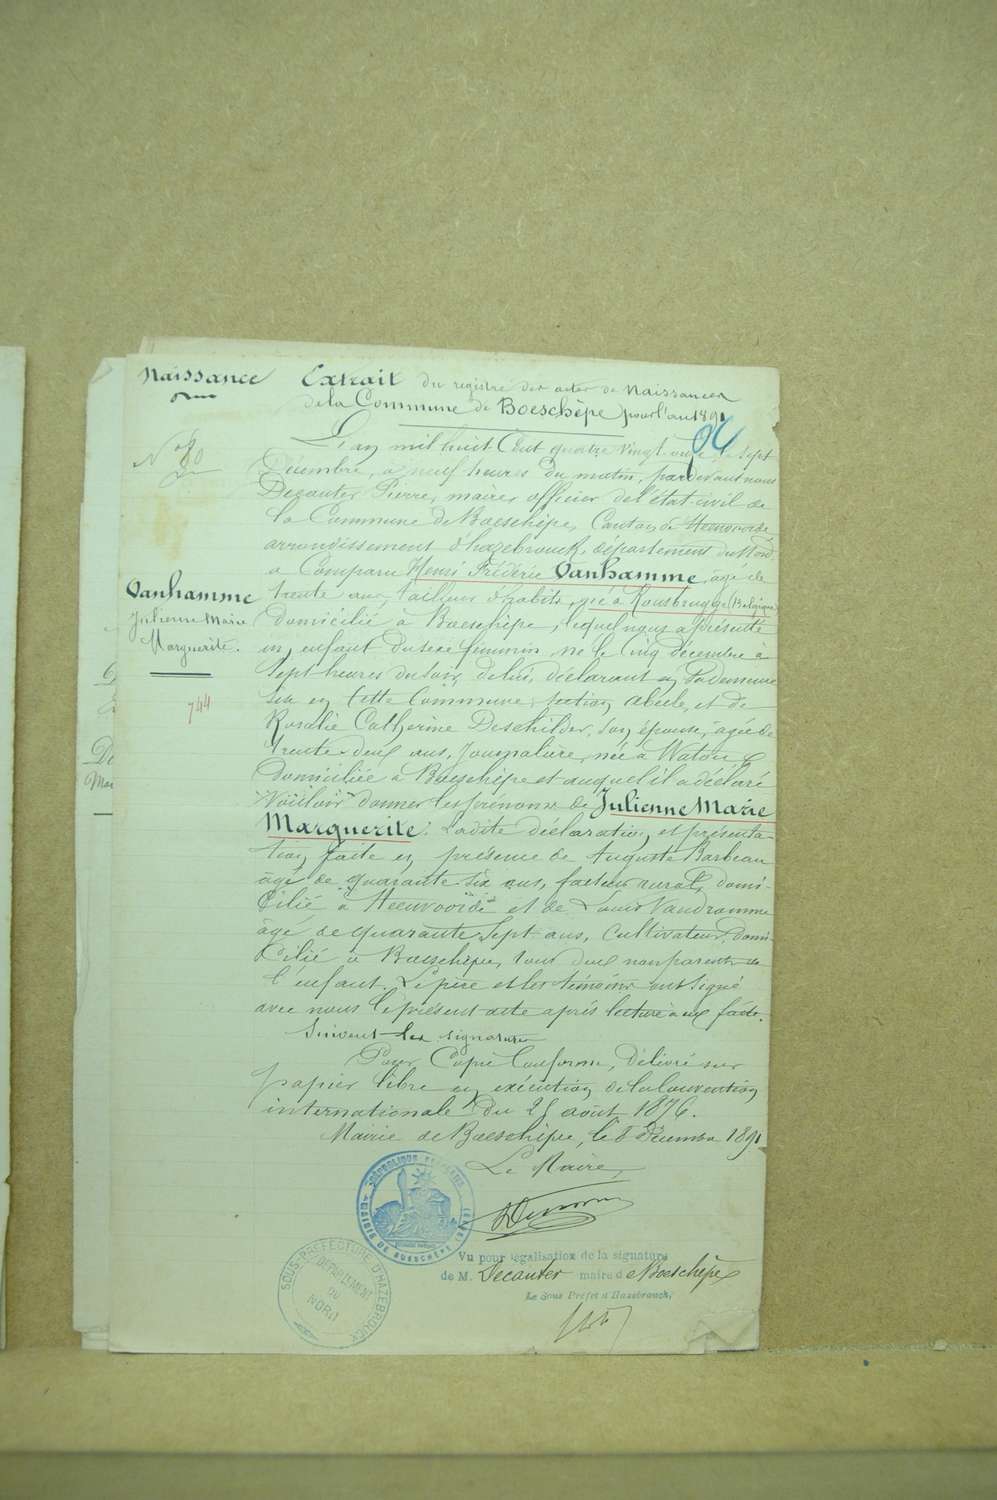 Naissance
Extrait du registre des actes de Naissances
de la Commune de Boeschèpe pour l'an 1891
94
N° 80
L'an mil huit Cent quatre vingt onze le sept
Décembre, à neuf heures du matin, pardevant nous
Decanter Pierre, maire, officier de l'état-civil de
la Commune de Boeschèpe, Canton de Steenvoorde
arrondissement d'hazebrouck, département du Nord
a Comparu Henri Fréderic Vanhamme, âgé de
trente ans, tailleur d'habits, né à Rousbrugge (Belgique
Domicilié à Boeschèpe, lequel nous a présenté
un enfant du sexe féminin né le Cinq décembre à
Sept heures du soir, de lui, déclarant en Sa demeure
Sise en Cette Commune, section Abeele, et de
Rosalie Catherine Deschilder, Son épouse, âgée de
trente-deux ans, Journalière, née à Watou &
Domiciliée à Boeschèpe et auquel il a déclaré
Vouloir donner les prénoms de Julienne Marie
Marguerite. Ladite déclaration et présenta-
tion faite en présence de Auguste Barbeau
âgé de quarante six ans, facteur rural, domi-
Cilié à Steenvoorde et de Louis Vandromme
âgé de quarante Sept ans, Cultivateur, domi-
Cilié à Boeschèpe, tous deux non parents de
l'enfant. Le père et les témoins ont signé
avec nous le présent acte après lecture à eux faite.
Suivent les signatures
Vanhamme
Julienne Marie
Marguerite.
744
Pour Copie Conforme, délivré sur
papier libre en exécution de la Convention
internationale du 25 août 1876.
Mairie de Boeschèpe, le 8 Décembre 1891
Le Maire,
RÉPUBLIQUE FRANÇAISE
MAIRIE DE BOESCHÈPE (NORD)
Vu pour légalisation de la signature
de M. Decanter maire de Boeschèpe
Le Sous Préfet d'Hazebrouck,
SOUS-PRÉFECTURE D'HAZEBROUCK
DÉPARTEMENT
DU
NORD